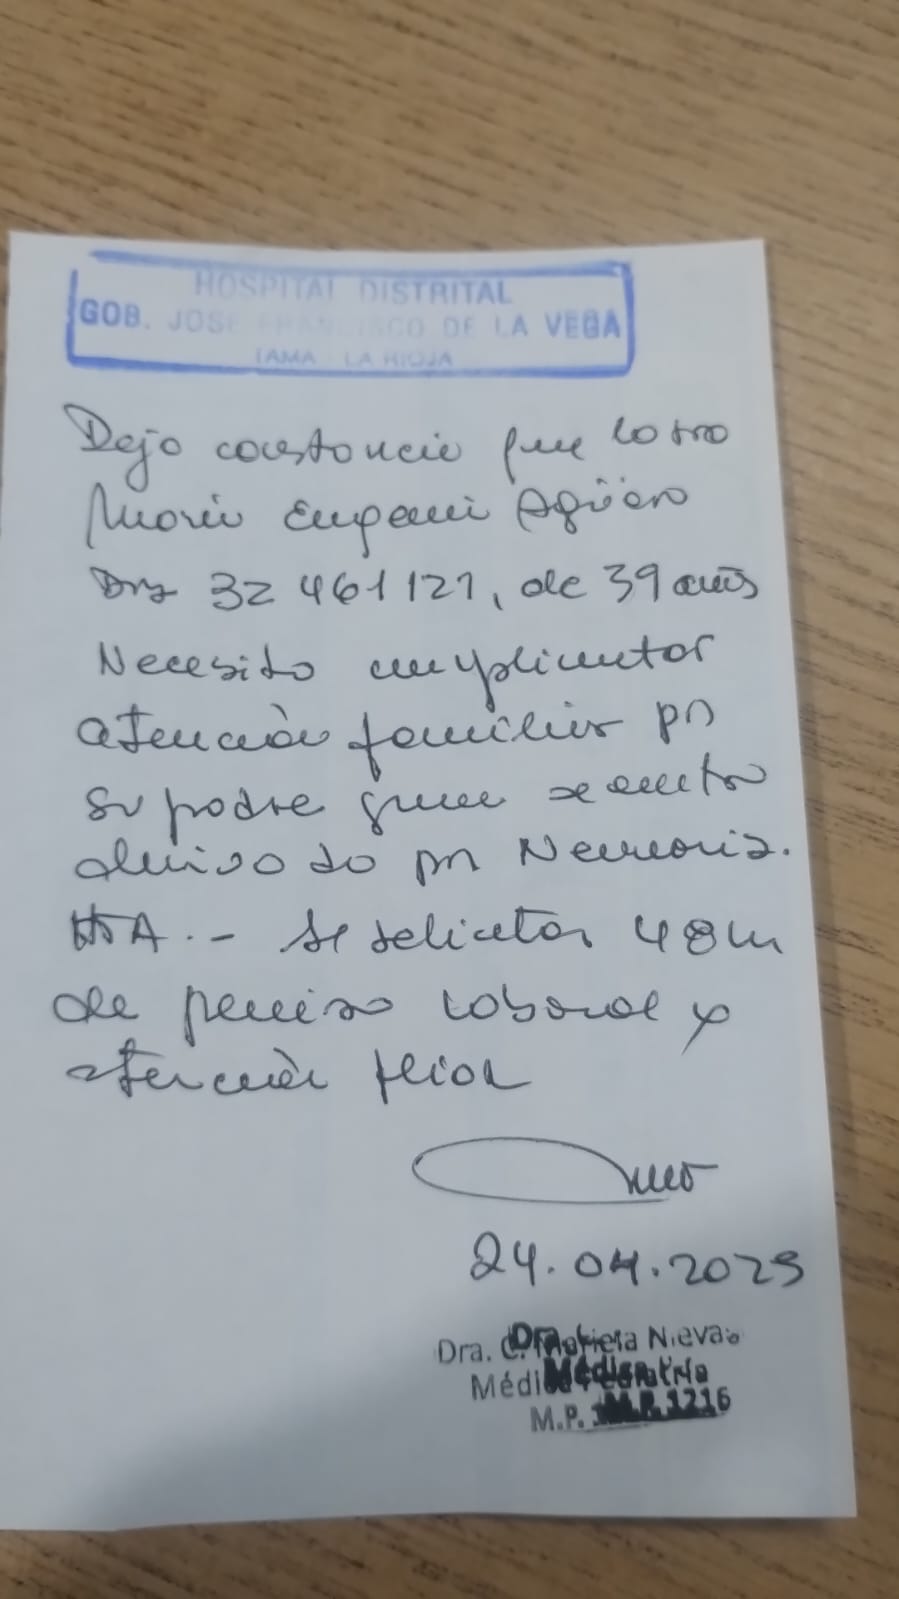 HOSPITAL DISTRITAL
GOB. JOSE FRANCISCO DE LA VEGA
TAMA LA RIOJA
Dejo constancia que la sra
Maria Eugenia Agüero
DNI 32 461 121, de 39 años
Necesita cumplimentar
atención familiar por
su padre quien se encuentra
por Neumonia.
HTA. - Se solicitan 48 hs
de permiso laboral x
atención fliar
24.04.2025
Dra. Nievas
Médica
M.P. 1216